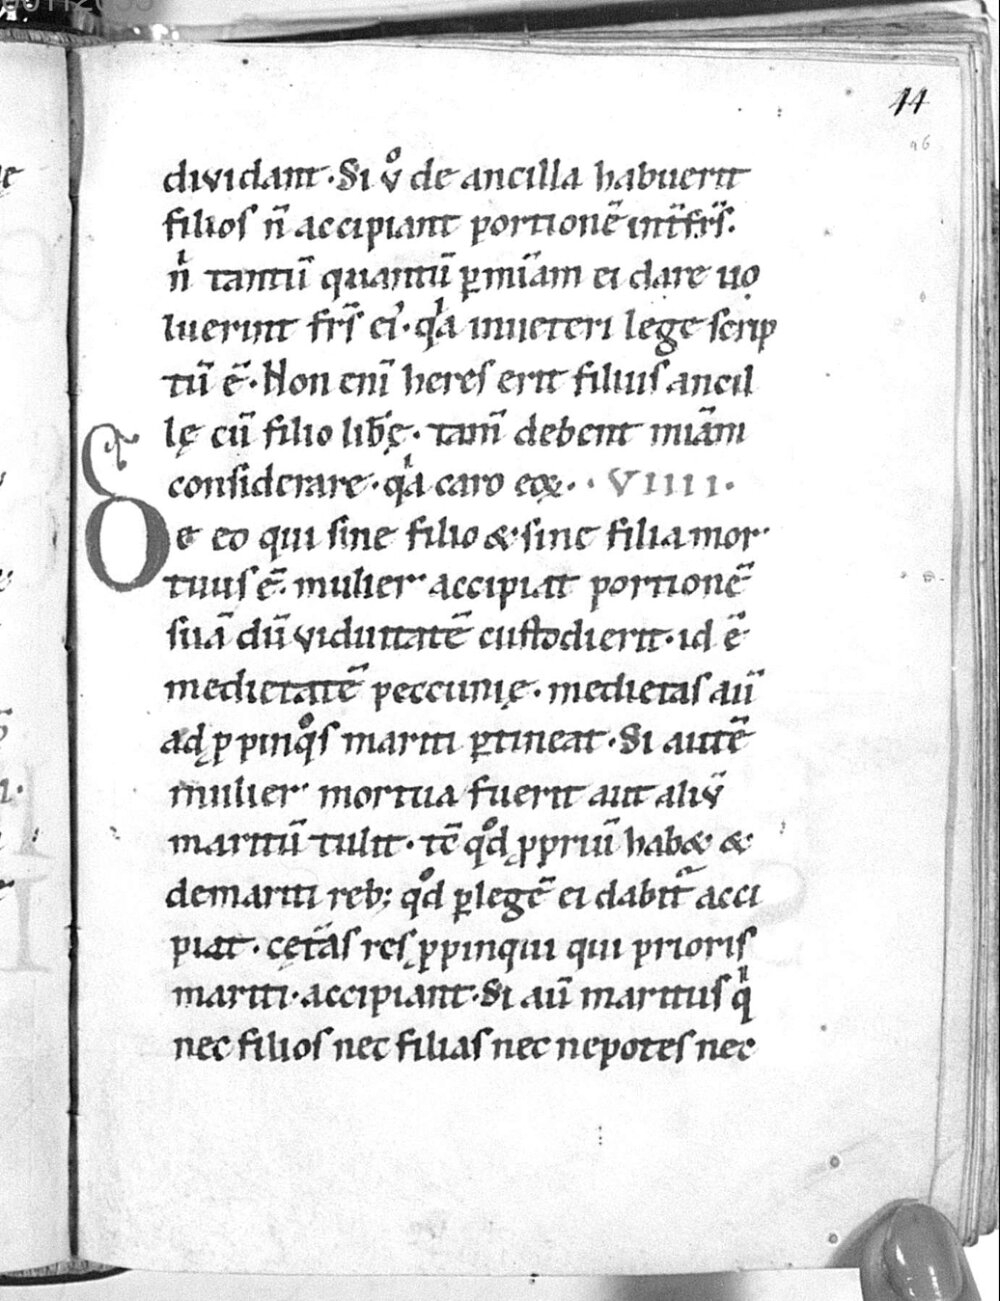 44
46
diuidant. Si ṽ de ancilla habuerit
filios ñ accipiant portionē int̄ fr̄s.
nͥ tantū quantū p̱ mīam ei dare uo
luerint fr̄s ei'. qͥa in ueteri lege scrip
tū ē. Non enī heres erit filius ancil
lę cū filio lib̄ę. tam̄ debent mīam
considerare. qͥa caro eoꝝ. . VIIII.
De eo qui sine filio & sine filia mor
tuus ē. mulier accipiat portionē
suā dū viduitatē custodierit. id ē
medietatē peccunię. medietas aū
ad ꝓpinqͦs mariti ꝑtineat. Si autē
mulier mortua fuerit aut aliū
maritū tulit. tc̄ qͦd ꝓpriū hab& &
de mariti reb; qͦd ꝑ legē ei dabit᷑ acci
piat. cęt̄as res ꝓpinqui qui prioris
mariti. accipiant. Si aū maritus qͥ
nec filios nec filias nec nepotes nec